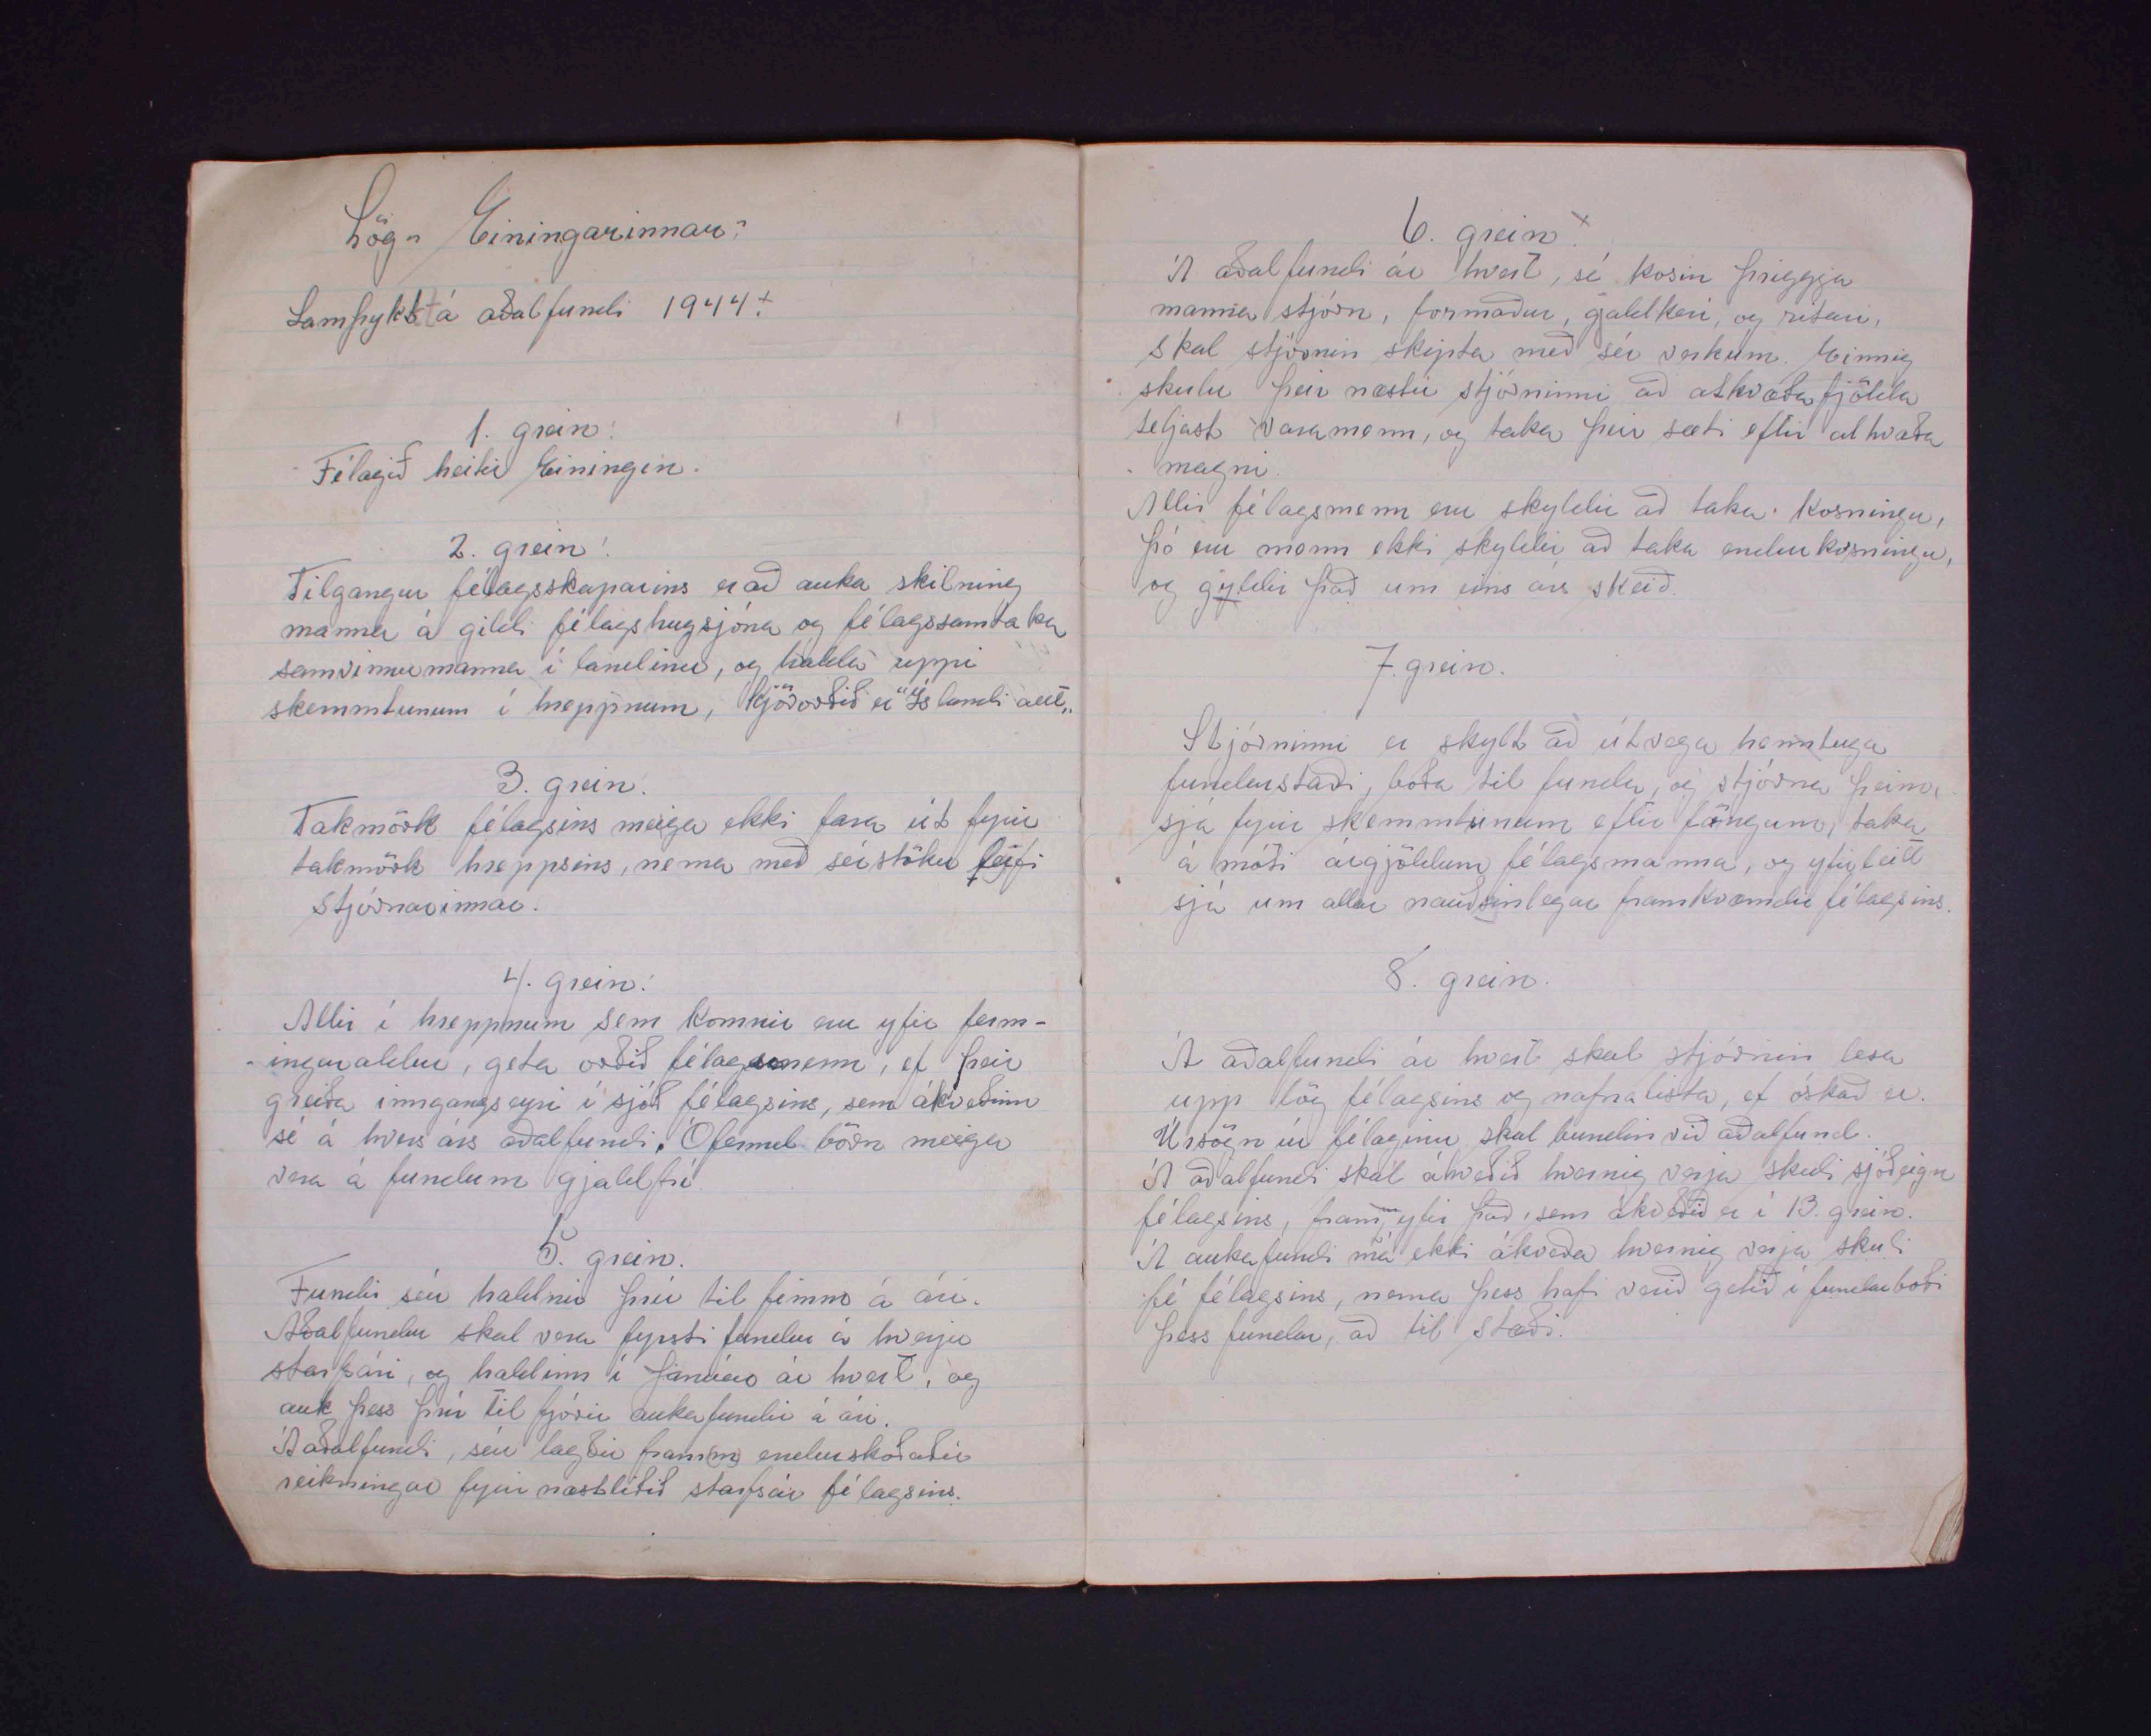 Lög Einingarinnar:
Samþykkt á aðalfundi 1944.
1. grein:
Félagið heitir Einingin.
2. grein:
Tilgangur félagsskaparins er að auka skilning
manna á gildi félagshugsjóna og félagssamtaka
samvinnumanna í landinu, og halda uppi
skemmtunum í hreppnum, Kjörorðið er "Íslandi allt„
3. grein:
Takmörk félagsins meiga ekki fara út fyrir
takmörk hreppsins, nema með sérstöku leyfi
Stjórnarinnar.
4. grein:
Allir í hreppnum sem komnir eru yfir ferm-
ingaraldur, geta orðið félagsmenn, ef þeir
greiða inngangseyri í sjóð félagsins, sem ákveðinn
sé á hvers árs aðalfundi. Ófermd börn meiga
vera á fundum gjaldfrí.
5. grein.
Fundir séu haldnir þrír til fimm á ári.
Aðalfundur skal vera fyrsti fundur á hverju
starfsári, og haldinn í Janúar ár hvert, og
auk þess þrír til fjórir aukafundir á ári.
Á aðalfundi, séu lagðir framm endurskoðaðir
reikningar fyrir næstliðið starfsár félagsins.
6. grein:
Á aðalfundi ár hvert, sé kosin þriggja
manna stjórn, formaður, gjaldkeri, og ritari,
skal stjórnin skipta með sér verkum. Einnig
skulu þeir næstir stjórninni að atkvæðafjölda
teljast varamenn, og taka þeir sæti eftir atkvæða
magni.
Allir félagsmenn eru skyldir að taka kosningu,
þó eru menn ekki skyldir að taka endurkosningu,
og gyldir það um eins árs skeið.
7. grein.
Stjórninni er skylt að útvega hentuga
fundarstaði, boða til funda, og stjórna þeim,
sjá fyrir skemmtunum eftir föngum, taka
á móti árgjöldum félagsmanna, og yfirleitt
sjá um allar nauðsinlegar framkvæmdir félagsins.
8. grein.
Á aðalfundi ár hvert skal stjórnin lesa
upp lög félagsins og nafnalista, ef óskað er.
Úrsögn úr félaginu skal bundin við aðalfund.
Á aðalfundi skal ákveðið hvernig verja skuli sjóðeign
félagsins, framm yfir það, sem ákveðið er í 13. grein.
Á aukafundi má ekki ákveða hvernig verja skuli
fé félagsins, nema þess hafi verið getið í fundarboði
þess fundar, að til stæði.